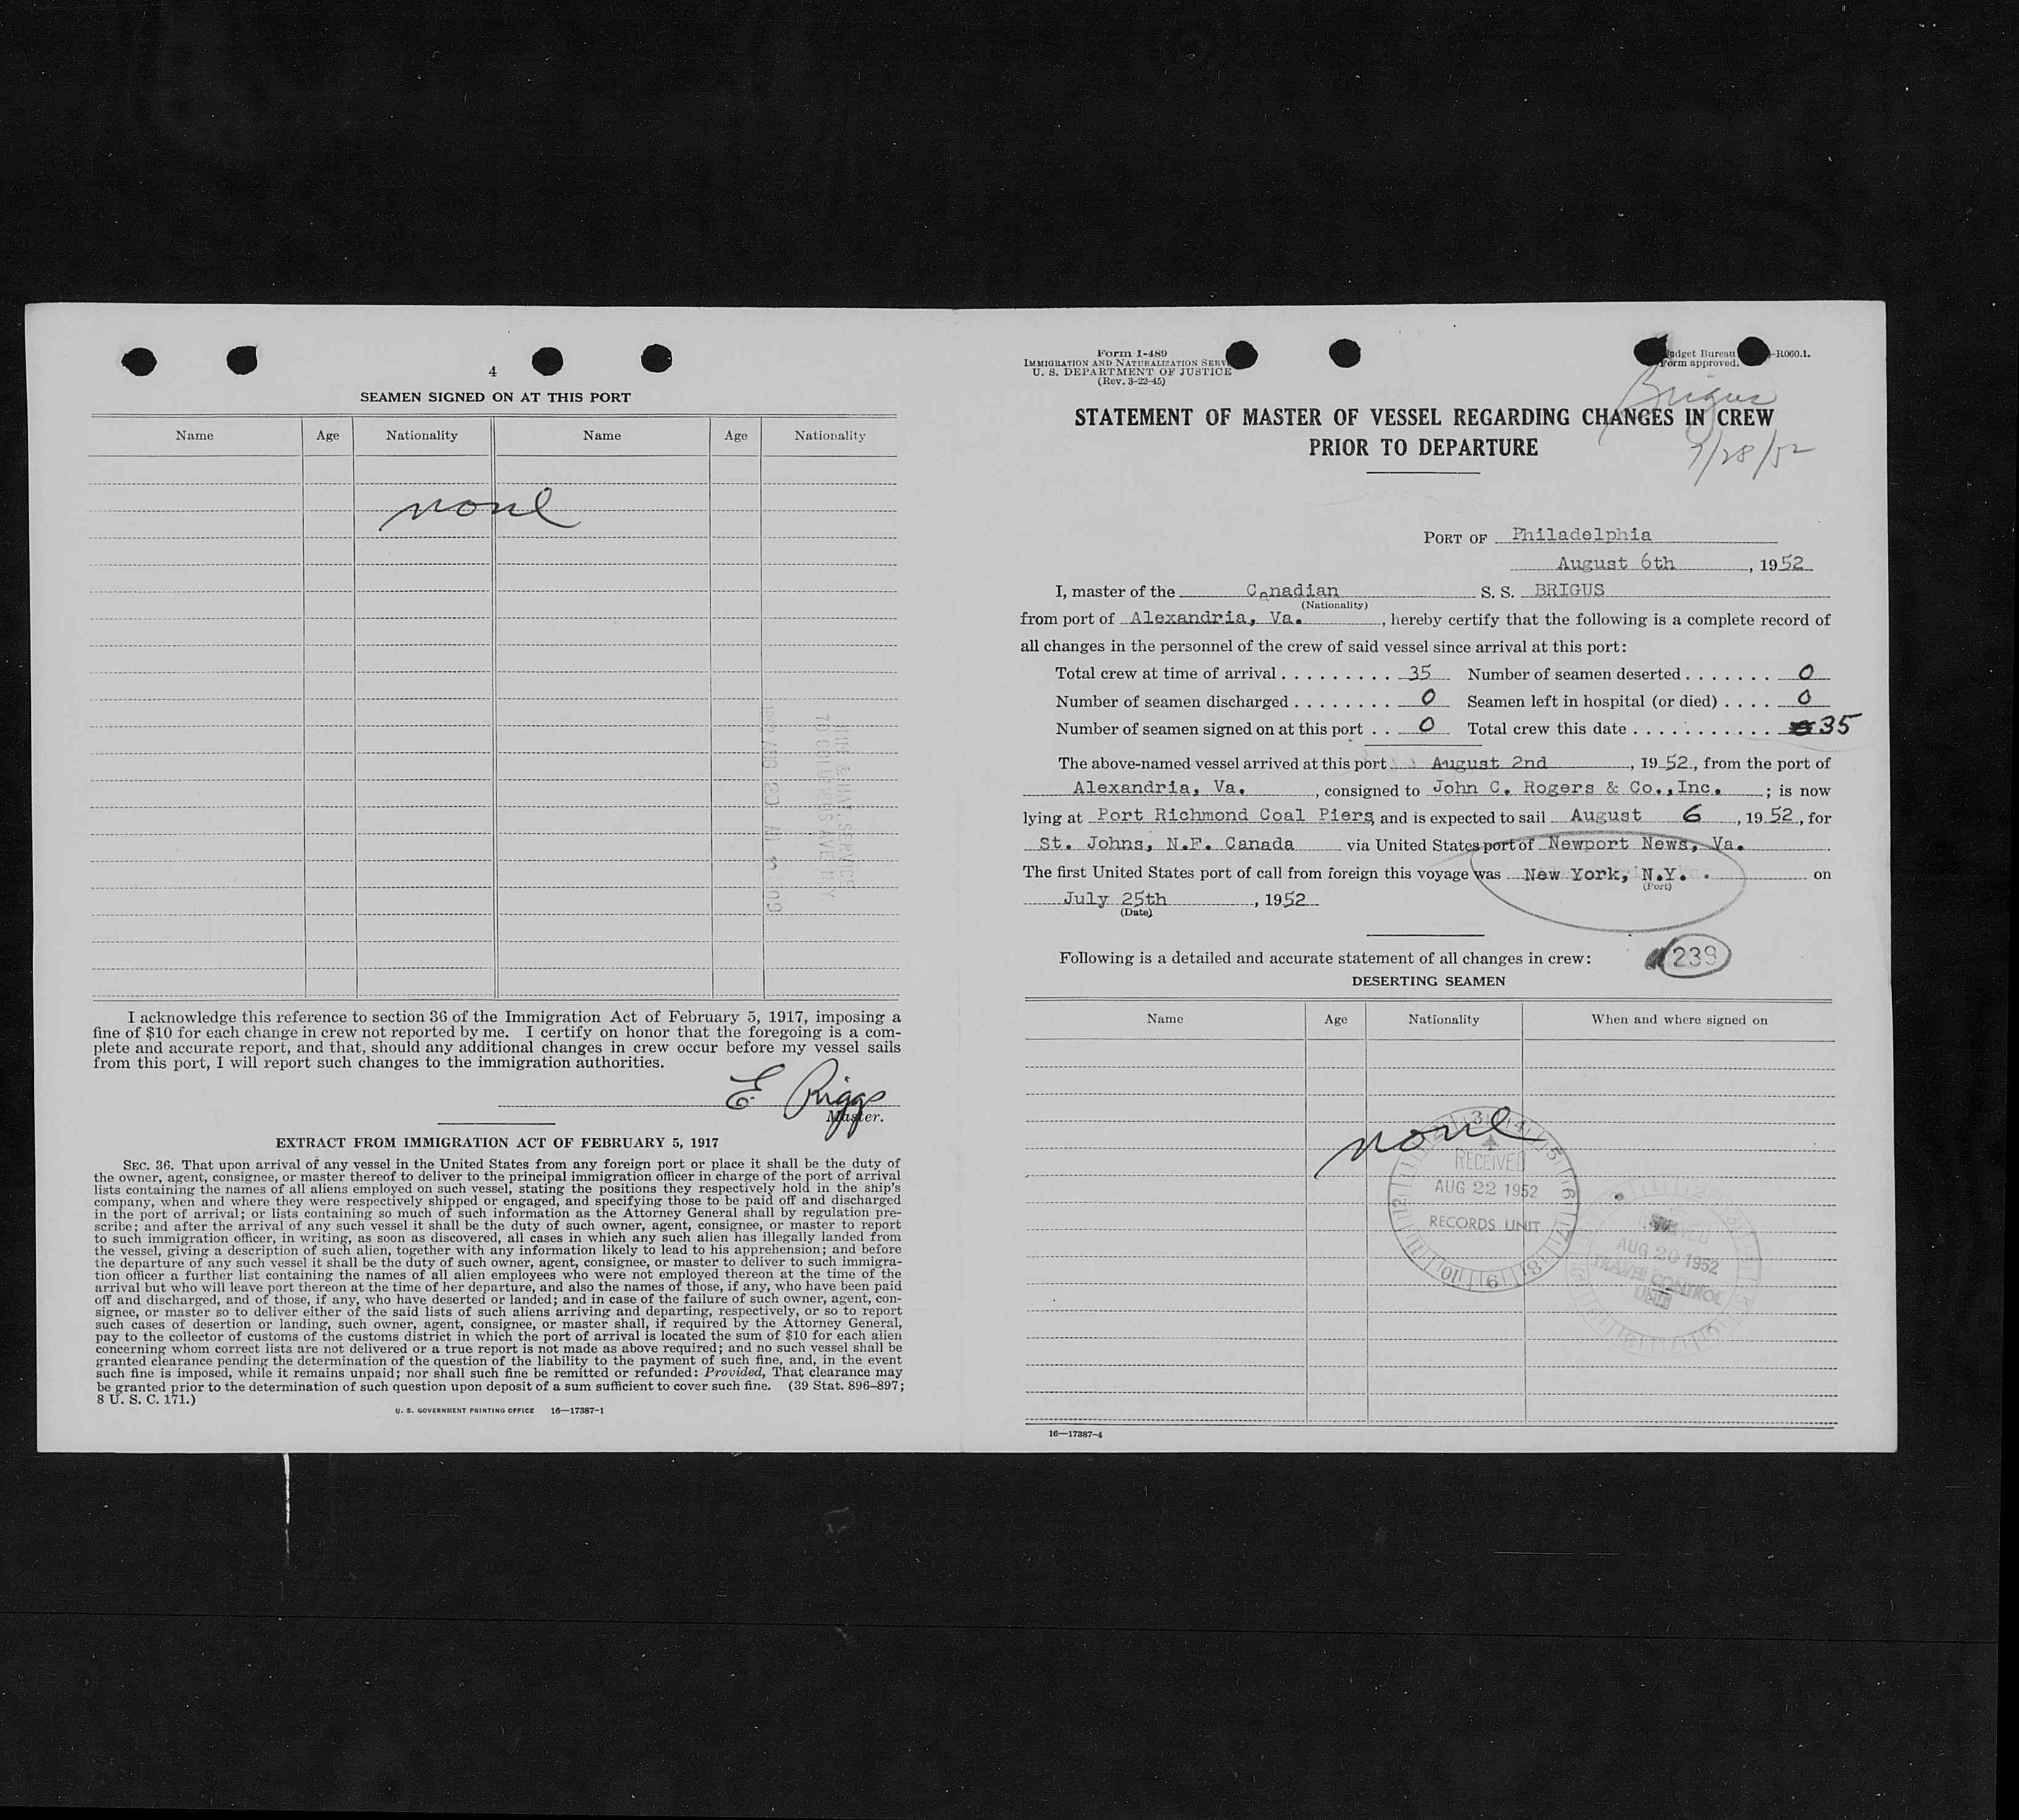 4
SEAMEN SIGNED ON AT THIS PORT
Name Age Nationality Name Age Nationality
none
I acknowledge this reference to section 36 of the Immigration Act of February 5, 1917, imposing a
fine of $10 for each change in crew not reported by me. I certify on honor that the foregoing is a com-
plete and accurate report, and that, should any additional changes in crew occur before my vessel sails
from this port, I will report such changes to the immigration authorities.
E Riggs
Master.
EXTRACT FROM IMMIGRATION ACT OF FEBRUARY 5, 1917
SEC. 36. That upon arrival of any vessel in the United States from any foreign port or place it shall be the duty of
the owner, agent, consignee, or master thereof to deliver to the principal immigration officer in charge of the port of arrival
lists containing the names of all aliens employed on such vessel, stating the positions they respectively hold in the ship's
company, when and where they were respectively shipped or engaged, and specifying those to be paid off and discharged
in the port of arrival; or lists containing so much of such information as the Attorney General shall by regulation pre-
scribe; and after the arrival of any such vessel it shall be the duty of such owner, agent, consignee, or master to report
to such immigration officer, in writing, as soon as discovered, all cases in which any such alien has illegally landed from
the vessel, giving a description of such alien, together with any information likely to lead to his apprehension; and before
the departure of any such vessel it shall be the duty of such owner, agent, consignee, or master to deliver to such immigra-
tion officer a further list containing the names of all alien employees who were not employed thereon at the time of the
arrival but who will leave port thereon at the time of her departure, and also the names of those, if any, who have been paid
off and discharged, and of those, if any, who have deserted or landed; and in case of the failure of such owner, agent, con-
signee, or master so to deliver either of the said lists of such aliens arriving and departing, respectively, or so to report
such cases of desertion or landing, such owner, agent, consignee, or master shall, if required by the Attorney General,
pay to the collector of customs of the customs district in which the port of arrival is located the sum of $10 for each alien
concerning whom correct lists are not delivered or a true report is not made as above required; and no such vessel shall be
granted clearance pending the determination of the question of the liability to the payment of such fine, and, in the event
such fine is imposed, while it remains unpaid; nor shall such fine be remitted or refunded: Provided, That clearance may
be granted prior to the determination of such question upon deposit of a sum sufficient to cover such fine. (39 Stat. 896–897;
8 U. S. C. 171.)
U. S. GOVERNMENT PRINTING OFFICE 16—17387-1
Form I-489
IMMIGRATION AND NATURALIZATION SERV
U. S. DEPARTMENT OF JUSTICE
(Rev. 3-22-45)
udget Bureau -R060.1.
Form approved.
Brigus
7/28/52
STATEMENT OF MASTER OF VESSEL REGARDING CHANGES IN CREW
PRIOR TO DEPARTURE
PORT OF Philadelphia
August 6th, 1952
I, master of the Canadian S. S. BRIGUS
(Nationality)
from port of Alexandria, Va., hereby certify that the following is a complete record of
all changes in the personnel of the crew of said vessel since arrival at this port:
Total crew at time of arrival . . . . . . . . . 35 Number of seamen deserted . . . . . . . 0
Number of seamen discharged . . . . . . . . 0 Seamen left in hospital (or died) . . . . 0
Number of seamen signed on at this port . . 0 Total crew this date . . . . . . . . . . . . 35
The above-named vessel arrived at this port August 2nd, 1952, from the port of
Alexandria, Va., consigned to John C. Rogers & Co.,Inc. ; is now
lying at Port Richmond Coal Piers, and is expected to sail August 6, 1952, for
St. Johns, N.F. Canada via United States port of Newport News, Va.
The first United States port of call from foreign this voyage was New York, N.Y. on
(Port)
July 25th, 1952
(Date)
Following is a detailed and accurate statement of all changes in crew:
239
DESERTING SEAMEN
Name Age Nationality When and where signed on
none
RECEIVED
AUG 22 1952
RECORDS UNIT
AUG 20 1952
TRAVEL CONTROL
UNIT
16—17387-4